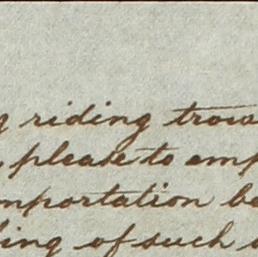 riding trows
please to emp
mportation be
ling of such